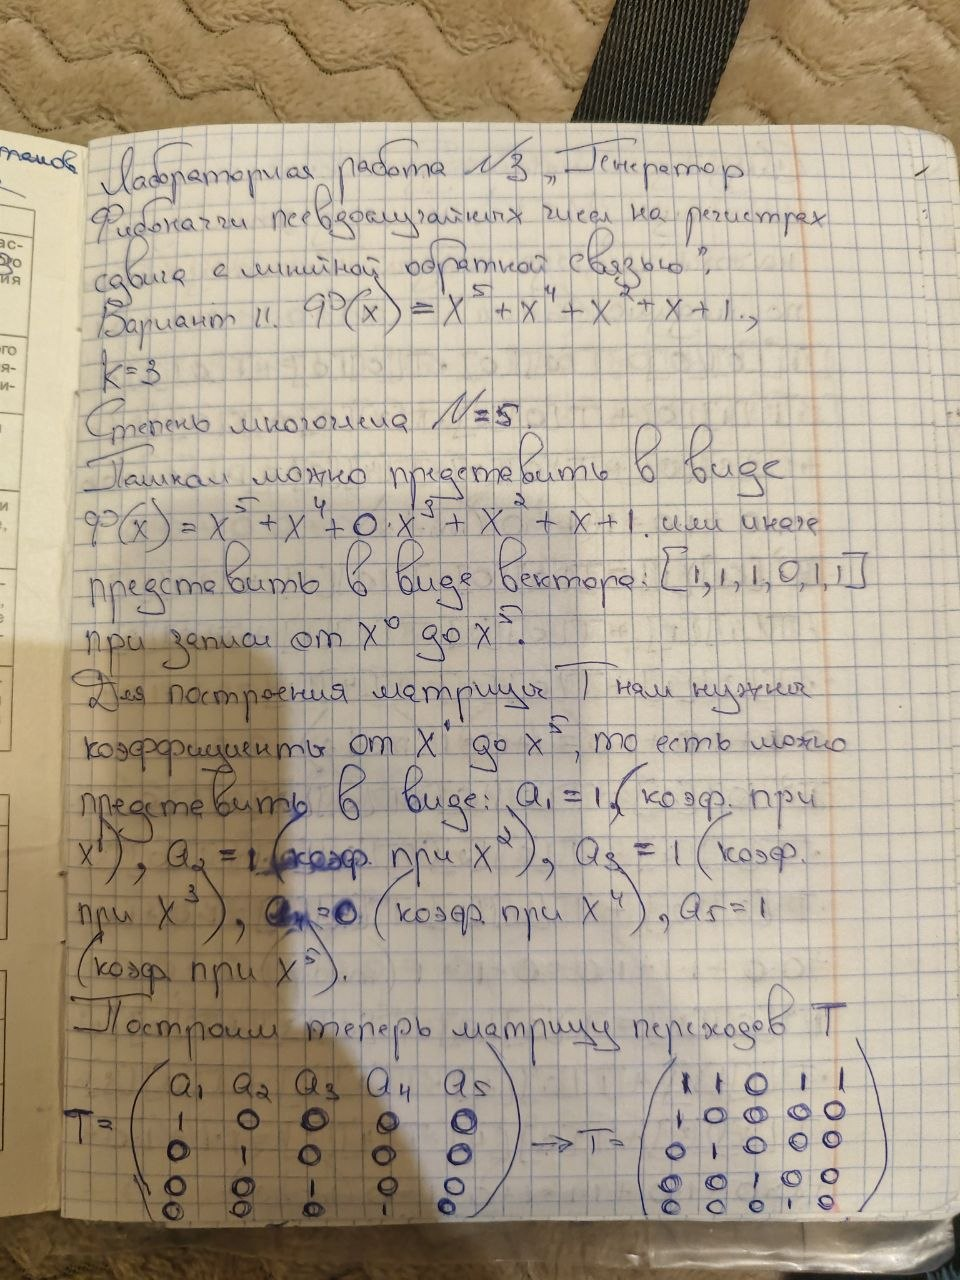 темов
ас-
го
ия
ого
я-
и-
Лабораторная работа №3 „Генератор
Фибоначчи псевдослучайных чисел на регистрах
сдвига с линейной обратной связью".
Вариант 11. φ(x) = x⁵ + x⁴ + x² + x + 1.,
k=3
Степень многочлена N=5.
Полином можно представить в виде
φ(x) = x⁵ + x⁴ + 0·x³ + x² + x + 1. или иначе
представить в виде вектора: [1,1,1,0,1,1]
при записи от x⁰ до x⁵.
Для построения матрицы T нам нужны
коэффициенты от x¹ до x⁵, то есть можно
представить в виде: a₁ = 1 (коэф. при
x¹), a₂ = 1 (коэф. при x²), a₃ = 1 (коэф.
при x³), a₄ = 0 (коэф. при x⁴), a₅ = 1
(коэф. при x⁵).
Построим теперь матрицу переходов T
a₁ a₂ a₃ a₄ a₅ 1 1 0 1 1
1 0 0 0 0 1 0 0 0 0
T = 0 1 0 0 0 → T = 0 1 0 0 0
0 0 1 0 0 0 0 1 0 0
0 0 0 1 0 0 0 0 1 0